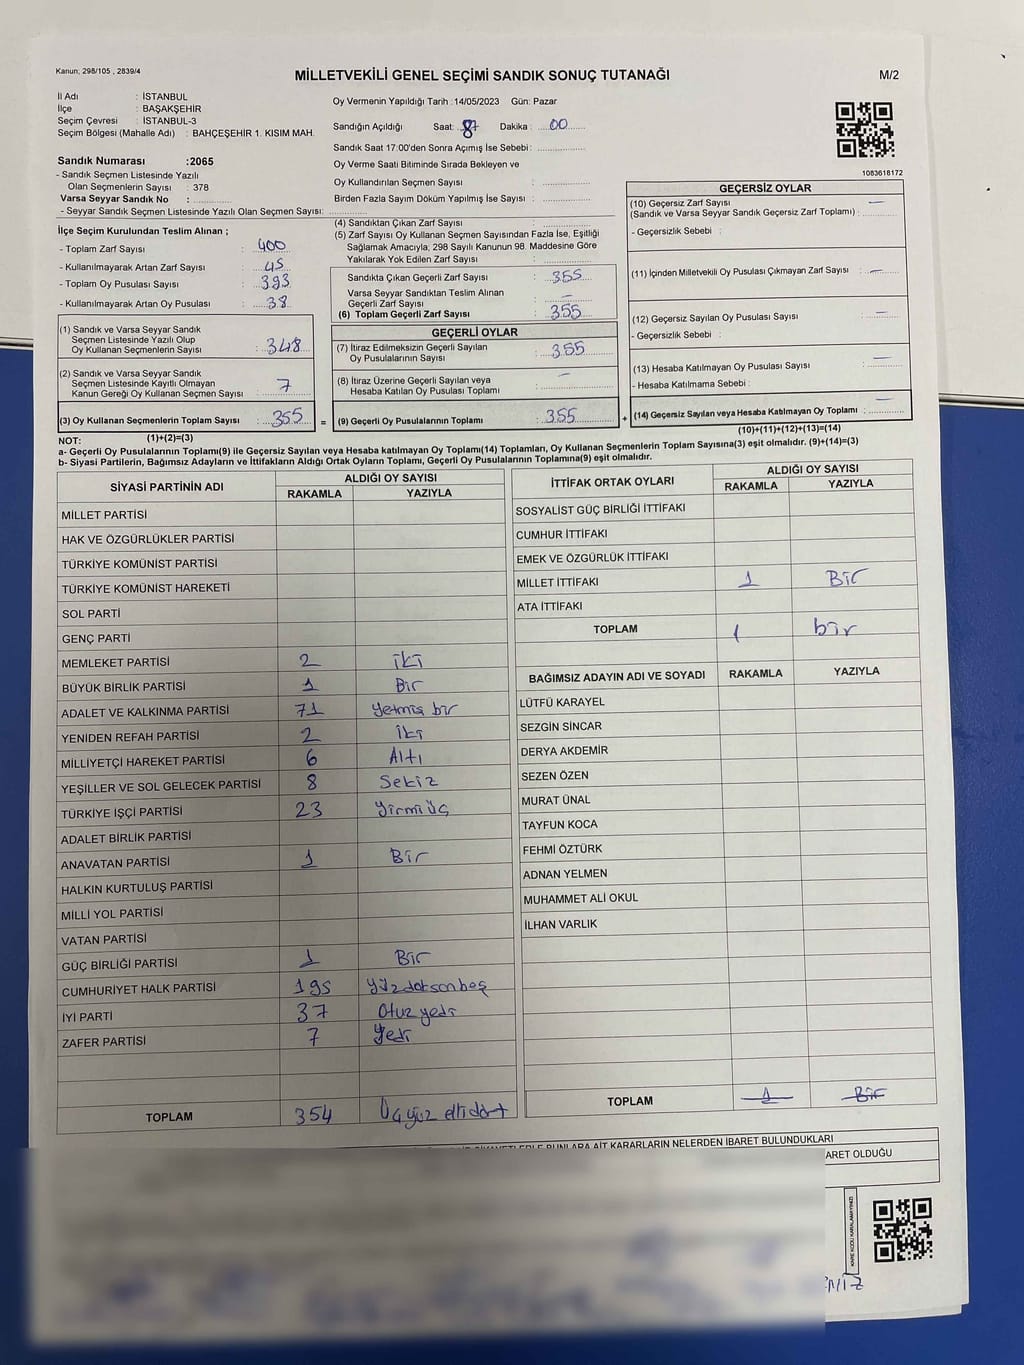 Kanun; 298/105 , 2839/4
MİLLETVEKİLİ GENEL SEÇİMİ SANDIK SONUÇ TUTANAĞI
M/2
İl Adı : İSTANBUL
İlçe : BAŞAKŞEHİR
Seçim Çevresi : İSTANBUL-3
Seçim Bölgesi (Mahalle Adı) : BAHÇEŞEHİR 1. KISIM MAH.
Sandık Numarası :2065
- Sandık Seçmen Listesinde Yazılı
Olan Seçmenlerin Sayısı : 378
Varsa Seyyar Sandık No :
- Seyyar Sandık Seçmen Listesinde Yazılı Olan Seçmen Sayısı:
Oy Vermenin Yapıldığı Tarih :14/05/2023 Gün: Pazar
Sandığın Açıldığı Saat: Dakika : 00
Sandık Saat 17:00'den Sonra Açımış İse Sebebi :
Oy Verme Saati Bitiminde Sırada Bekleyen ve
Oy Kullandırılan Seçmen Sayısı :
Birden Fazla Sayım Döküm Yapılmış İse Sayısı :
1083618172
İlçe Seçim Kurulundan Teslim Alınan ;
- Toplam Zarf Sayısı : 400
- Kullanılmayarak Artan Zarf Sayısı : 45
- Toplam Oy Pusulası Sayısı : 393
- Kullanılmayarak Artan Oy Pusulası : 38
(1) Sandık ve Varsa Seyyar Sandık
Seçmen Listesinde Yazılı Olup
Oy Kullanan Seçmenlerin Sayısı : 348
(2) Sandık ve Varsa Seyyar Sandık
Seçmen Listesinde Kayıtlı Olmayan
Kanun Gereği Oy Kullanan Seçmen Sayısı : 7
(3) Oy Kullanan Seçmenlerin Toplam Sayısı : 355
(1)+(2)=(3)
(4) Sandıktan Çıkan Zarf Sayısı :
(5) Zarf Sayısı Oy Kullanan Seçmen Sayısından Fazla İse, Eşitliği
Sağlamak Amacıyla; 298 Sayılı Kanunun 98. Maddesine Göre
Yakılarak Yok Edilen Zarf Sayısı :
Sandıkta Çıkan Geçerli Zarf Sayısı : 355
Varsa Seyyar Sandıktan Teslim Alınan
Geçerli Zarf Sayısı : –
(6) Toplam Geçerli Zarf Sayısı : 355
GEÇERLİ OYLAR
(7) İtiraz Edilmeksizin Geçerli Sayılan
Oy Pusulalarının Sayısı : 355
(8) İtiraz Üzerine Geçerli Sayılan veya
Hesaba Katılan Oy Pusulası Toplamı : –
= (9) Geçerli Oy Pusulalarının Toplamı : 355 +
GEÇERSİZ OYLAR
(10) Geçersiz Zarf Sayısı –
(Sandık ve Varsa Seyyar Sandık Geçersiz Zarf Toplamı) :
- Geçersizlik Sebebi :
(11) İçinden Milletvekili Oy Pusulası Çıkmayan Zarf Sayısı : –
(12) Geçersiz Sayılan Oy Pusulası Sayısı : –
- Geçersizlik Sebebi :
(13) Hesaba Katılmayan Oy Pusulası Sayısı : –
- Hesaba Katılmama Sebebi :
(14) Geçersiz Sayılan veya Hesaba Katılmayan Oy Toplamı : –
(10)+(11)+(12)+(13)=(14)
NOT:
a- Geçerli Oy Pusulalarının Toplamı(9) ile Geçersiz Sayılan veya Hesaba katılmayan Oy Toplamı(14) Toplamları, Oy Kullanan Seçmenlerin Toplam Sayısına(3) eşit olmalıdır. (9)+(14)=(3)
b- Siyasi Partilerin, Bağımsız Adayların ve İttifakların Aldığı Ortak Oyların Toplamı, Geçerli Oy Pusulalarının Toplamına(9) eşit olmalıdır.
SİYASİ PARTİNİN ADI ALDIĞI OY SAYISI
RAKAMLA YAZIYLA
MİLLET PARTİSİ
HAK VE ÖZGÜRLÜKLER PARTİSİ
TÜRKİYE KOMÜNİST PARTİSİ
TÜRKİYE KOMÜNİST HAREKETİ
SOL PARTİ
GENÇ PARTİ
MEMLEKET PARTİSİ 2 iki
BÜYÜK BİRLİK PARTİSİ 1 Bir
ADALET VE KALKINMA PARTİSİ 71 Yetmiş bir
YENİDEN REFAH PARTİSİ 2 iki
MİLLİYETÇİ HAREKET PARTİSİ 6 Altı
YEŞİLLER VE SOL GELECEK PARTİSİ 8 Sekiz
TÜRKİYE İŞÇİ PARTİSİ 23 Yirmi üç
ADALET BİRLİK PARTİSİ
ANAVATAN PARTİSİ 1 Bir
HALKIN KURTULUŞ PARTİSİ
MİLLİ YOL PARTİSİ
VATAN PARTİSİ
GÜÇ BİRLİĞİ PARTİSİ 1 Bir
CUMHURİYET HALK PARTİSİ 195 Yüz doksan beş
İYİ PARTİ 37 Otuz yedi
ZAFER PARTİSİ 7 Yedi
TOPLAM 354 Üç yüz elli dört
İTTİFAK ORTAK OYLARI ALDIĞI OY SAYISI
RAKAMLA YAZIYLA
SOSYALİST GÜÇ BİRLİĞİ İTTİFAKI
CUMHUR İTTİFAKI
EMEK VE ÖZGÜRLÜK İTTİFAKI
MİLLET İTTİFAKI 1 Bir
ATA İTTİFAKI
TOPLAM 1 bir
BAĞIMSIZ ADAYIN ADI VE SOYADI RAKAMLA YAZIYLA
LÜTFÜ KARAYEL
SEZGİN SİNCAR
DERYA AKDEMİR
SEZEN ÖZEN
MURAT ÜNAL
TAYFUN KOCA
FEHMİ ÖZTÜRK
ADNAN YELMEN
MUHAMMET ALİ OKUL
İLHAN VARLIK
TOPLAM 1 Bir
BUNLARA AİT KARARLARIN NELERDEN İBARET BULUNDUKLARI
ARET OLDUĞU
KARE KODU KARALAMAYINIZ!